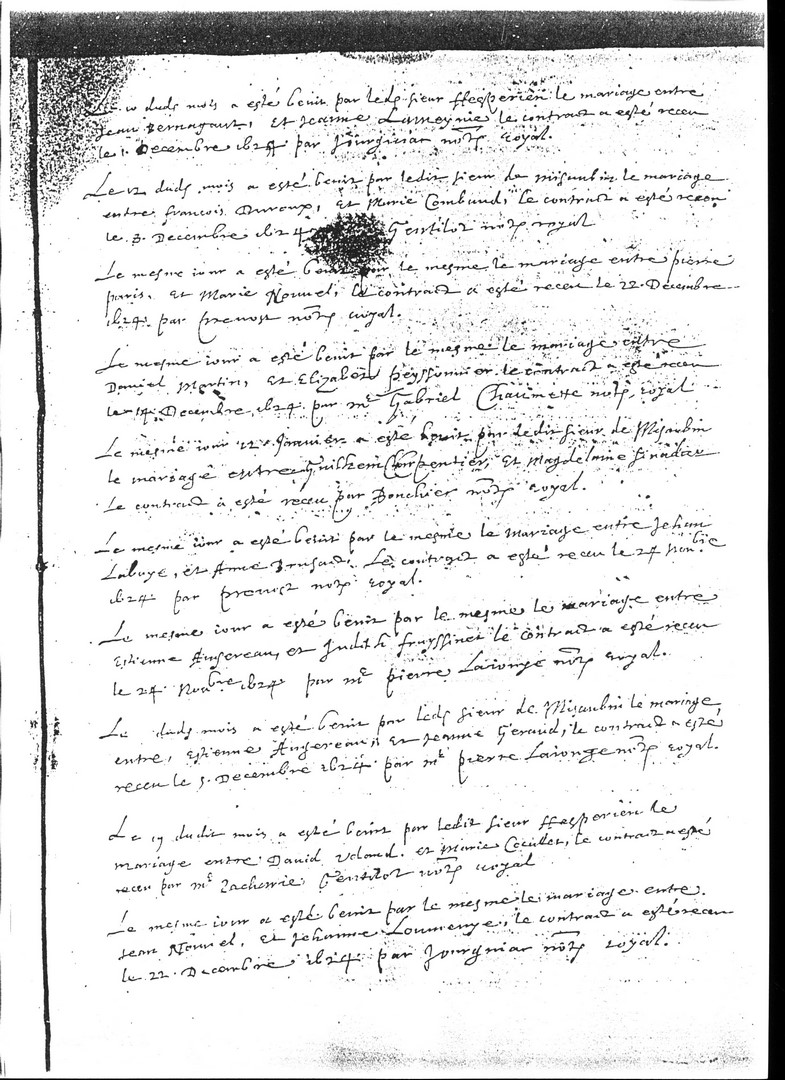 Le 10 duds mois a esté benit par leds sieur Hesperien le mariage entre
Jean Bernagaut, et Jeanne Lameynie le contract a esté receu
le 1 Decembre 1624 par Jourgniac nore royal.
Le 12 duds mois a esté benit par ledit sieur de Misaubin le mariage
entre francois Duroux, et Marie Combaud, le contract a esté receu
le 3. Decembre 1624 Gentilot nore royal
Le mesme iour a esté benit par le mesme le mariage entre pierre
paris, et Marie Nouvel, le contract a esté receu le 22. Decembre
1624. par prevost nore royal.
Le mesme iour a esté benit par le mesme le mariage entre
Daniel Martin, et Elizabeth peyssonnier le contract a esté receu
le 14 Decembre, 1624. par me Gabriel Chaumette nore royal
Le mesme iour 12 Janvier a esté benit par ledit sieur de Misaubin
le mariage entre Guilhem Charpentier, et Magdelaine
Le contract a esté receu par Bouchier nore royal.
Le mesme iour a esté benit par le mesme le mariage entre Jehan
Laboye, et Anne Le contract a esté receu le 24 Nonbre
1624 par prevost nore royal.
Le mesme iour a esté benit par le mesme le mariage entre
Estienne Augereau, et Judith frayssinet le contract a esté receu
le 24 Novbre 1624 par me pierre Laionge nore royal.
Le duds mois a esté benit par leds sieur de Misaubin le mariage
entre, Estienne Augereau, et Jeanne Geraud, le contract a esté
receu le 5. Decembre 1624 par me pierre Laionge nore royal.
Le 19 dudit mois a esté benit par ledit sieur Hesperien le
mariage entre David et Marie le contract a esté
receu par me Zacharie Gentilot nore royal
Le mesme iour a esté benit par le mesme le mariage entre.
Jean Nouvel, et Jehanne Loumenye, le contract a esté receu
le 22. Decembre 1624 par Jourgniac nore royal.